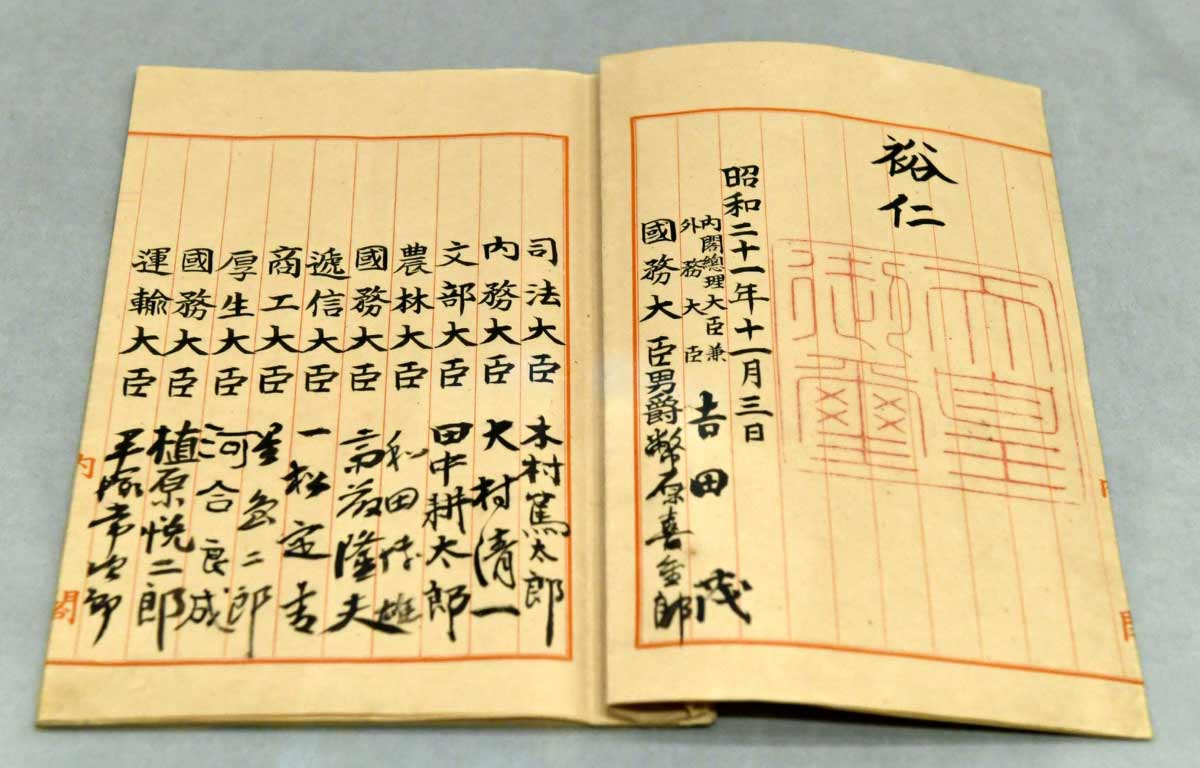 裕仁
天皇御璽
昭和二十一年十一月三日
内閣總理大臣兼
外務大臣 吉田茂
國務大臣 男爵 幣原喜重郎
司法大臣 木村篤太郎
内務大臣 大村清一
文部大臣 田中耕太郎
農林大臣 和田博雄
國務大臣 斎藤隆夫
遞信大臣 一松定吉
商工大臣 星島二郎
厚生大臣 河合良成
國務大臣 植原悦二郎
運輸大臣 平塚常次郎
内閣